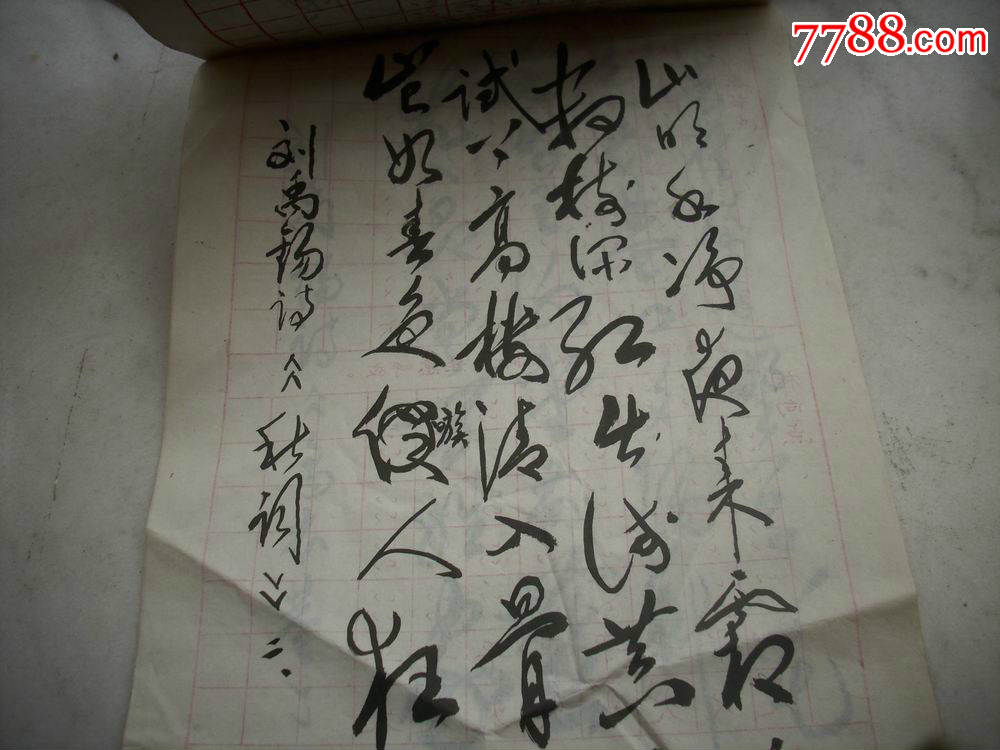 7788.com
山明水净夜来霜
数树深红出浅黄
试上高楼清入骨
岂如春色嗾人狂
刘禹锡诗《秋词》二.